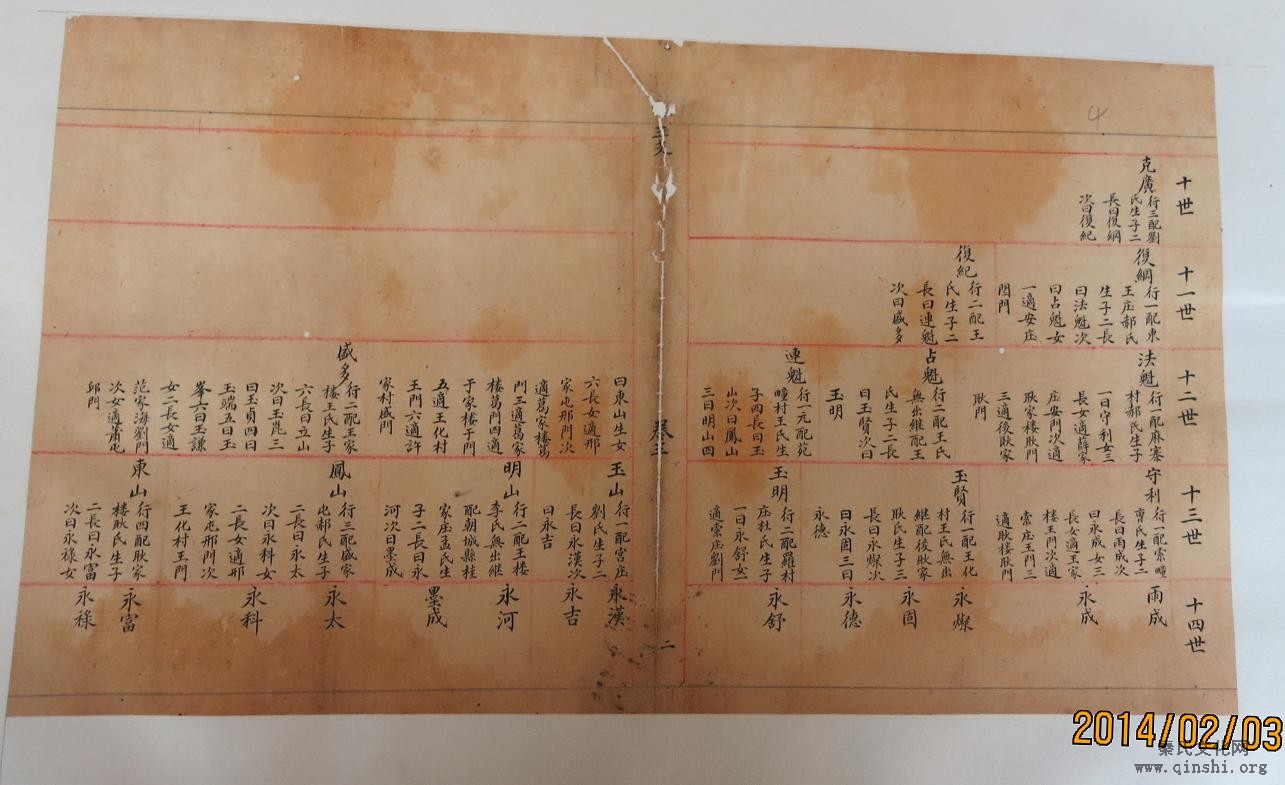 4
十世
克廣
行三配劉
氏生子二
長曰復綱
次曰復紀
十一世
復綱
行一配東
王庄郝氏
生子二長
曰法魁次
曰占魁女
一適安庄
閆門
復紀
行二配王
氏生子二
長曰連魁
次曰盛多
十二世
法魁
行一配麻寨
村郝氏生子
一曰守利女三
長女適薛家
庄安門次適
耿家楼耿門
三適後耿家
耿門
占魁
行二配王氏
無出継配王
氏生子二長
曰玉賢次曰
玉明
連魁
行一元配苑
疃村王氏生
子四長曰玉
山次曰鳳山
三曰明山四
十三世
守利
行一配索疃
賣氏生子二
長曰雨成次
曰永成女三
長女適王家
楼王門次適
索庄王門三
適耿楼耿門
玉賢
行一配王化
村王氏無出
継配後耿家
耿氏生子三
長曰永燦次
曰永固三曰
永德
玉明
行二配羅村
庄杜氏生子
一曰永舒女一
適索庄劉門
十四世
雨成
永成
永燦
永固
永德
永舒
卷三
二
曰東山生女
六長女適邢
家屯邢門次
適葛家楼葛
門三適葛家
楼葛門四適
于家楼于門
五適王化村
王門六適許
家村盛門
盛多
行二配王家
楼王門生子
六長曰立山
次曰玉崑三
曰玉貞四曰
玉端五曰玉
峯六曰玉謙
女二長女適
范家海劉門
次女適肅屯
邱門
玉山
行一配宮庄
劉氏生子二
長曰永漢次
曰永吉
明山
行二配王楼
李氏無出継
配朝城縣桂
家庄孟氏生
子二長曰永
河次曰墨成
鳳山
行三配盛家
屯郝氏生子
二長曰永太
次曰永科女
二長女適邢
家屯邢門次
王化村王門
東山
行四配耿家
楼耿氏生子
二長曰永富
次曰永祿女
永漢
永吉
永河
墨成
永太
永科
永富
永祿
2014/02/03
秦氏文化网
www.qinshi.org